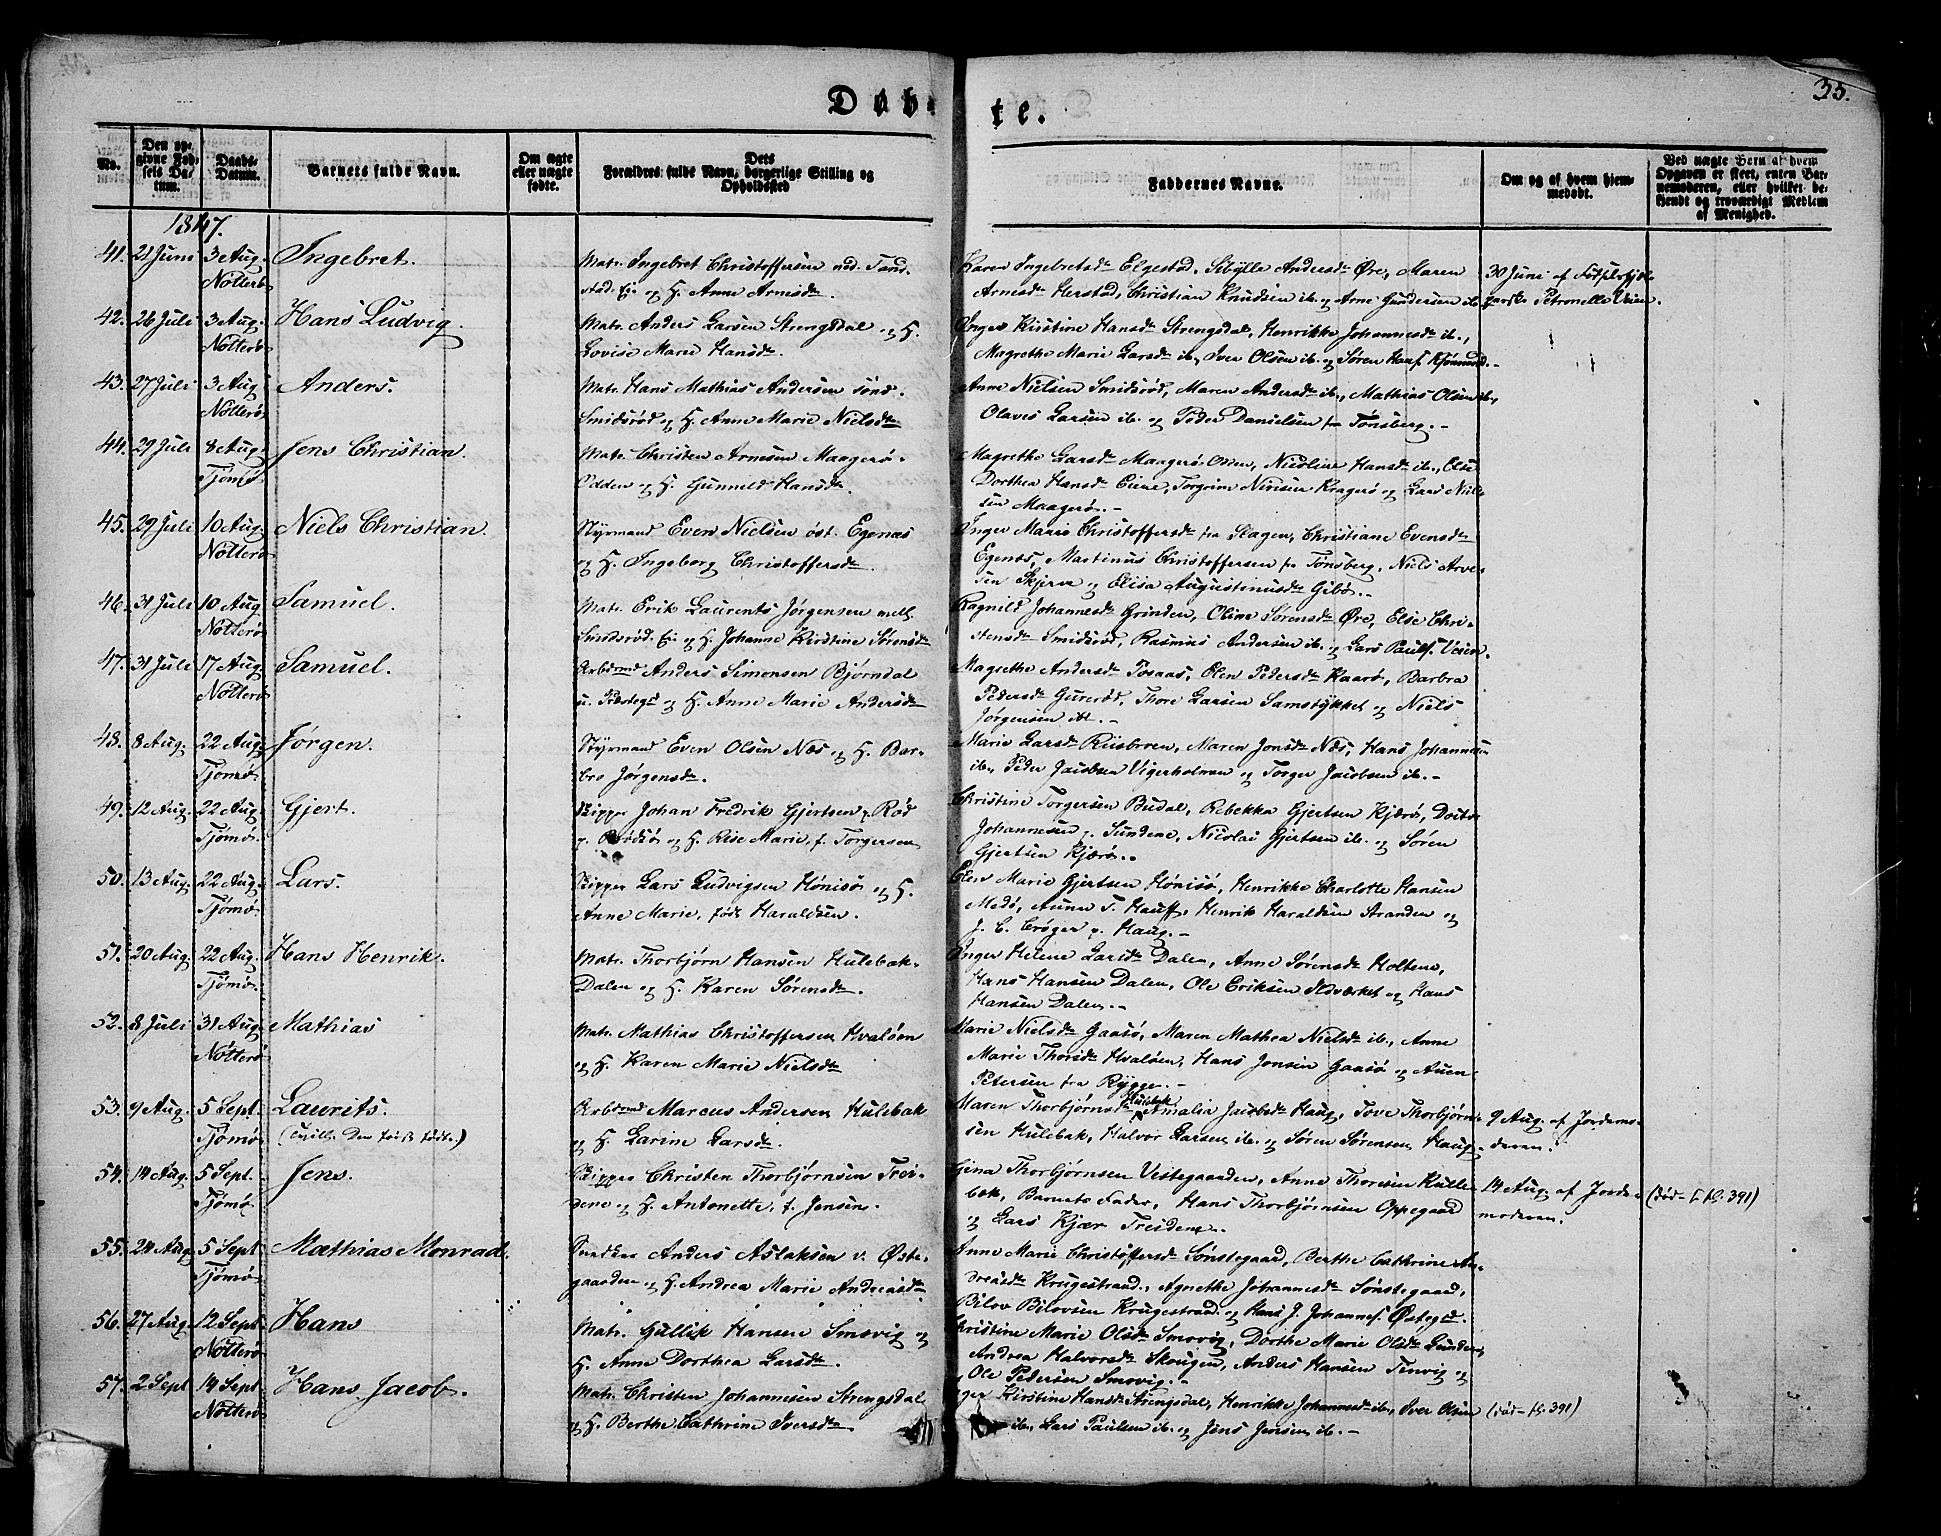 Døbte.
35.
No.
Den opgivne Fødsels Datum.
Daabs-Datum.
Barnets fulde Navn.
Om ægte eller uægte fødte.
Dets Forældres fulde Navn, borgerlige Stilling og Opholdssted
Faddernes Navne.
Om og af hvem hjemmedøbt.
Ved uægte Børn af hvem Opgaven er skeet, enten Barnemoderen, eller hvilket bekjendt og troværdigt Medlem af Menighed.
1847.
41. 21 Juni 3 Aug. Nøtterø Ingebret. Matr. Ingebret Christoffersen
og H. Anne Arnesdtr.
Karen Ingebretsdtr Elgestad, Sibylle Andersdtr Øre, Maren
Arnesdtr Herstad, Christian Knudsen ib. og Arne Gundersen ib.
30 Juni af
Petronelle Veien.
42. 26 Juli 3 Aug. Nøtterø Hans Ludvig. Matr. Anders Larsen Strengsdal og H.
Lovise Marie Hansdtr.
Inger Kirstine Hansdtr Strengsdal, Henrikke Johannesdtr ib.,
Magrethe Marie Larsdtr ib., Iver Olsen ib. og Søren Hans.
43. 27 Juli 3 Aug. Nøtterø Anders. Matr. Hans Mathias Andersen sønd.
Smidsrød og H. Anne Marie Nielsdtr
Anne Nielsen Smidsrød, Maren Andersdtr ib., Mathias Olsen ib.,
Olaves Larsen ib. og Peder Danielsen fra Tønsberg.-
44. 29 Juli 8 Aug. Tjømø Jens Christian. Matr. Christen Arnesen Maagerø-
Odden og H. Gunneld Hansdtr.
Magrethe Larsdtr Maagerø-Odden, Nicoline Hansdtr ib., Else
Dorthea Hansdtr Eiene, Torgrim Nirisen Kragerø og Lars Niel-
sen Maagerø.-
45. 29 Juli 10 Aug. Nøtterø Niels Christian. Styrmand Even Nielsen øst. Egenæs
og H. Ingeborg Christoffersdtr.
Inger Marie Christoffersdtr fra Slagen, Christiane Evensdtr
Egenæs, Martinus Christoffersen fra Tønsberg, Niels Arve-
sen Skjerve og Elisa Augustinusdtr Gibø.-
46. 31 Juli 10 Aug. Nøtterø Samuel. Matr. Erik Laurents Jørgensen mell.
Smidsrød. Ei og H. Johanne Kirstine Sørensdtr
Ragnild Johannesdtr Grinden, Oline Sørensdtr Øre, Else Chri-
stensdtr Smidsrød, Rasmus Andersen ib. og Lars Pauls. Veien.
47. 31 Juli 17 Aug. Nøtterø Samuel. Arbdsmd Anders Simonsen Bjørndal
u. Præstegd og H. Anne Marie Andersdtr
Magrethe Andersdtr Tosaas, Olen Pedersdtr Kaarø, Barbra
Pedersdtr Gurerød, Thore Larsen Samstykket og Niels
Jørgensen ibt.-
48. 8 Aug. 22 Aug. Tjømø Jørgen. Styrmand Even Olsen Næs og H. Bar-
bro Jørgensdtr.
Marie Larsdtr Riisbroen, Maren Jonsdtr Næs, Hans Johannesen
ib., Peder Jacobsen Vigerholmen og Torger Jacobsen ib.-
49. 12 Aug. 22 Aug. Tjømø Gjert. Skipper Johan Fredrik Gjertsen p. Rød
p. Brødsø og H. Rise Marie, f. Torgersen
Christine Torgersen Budal, Rebekka Gjertsen Kjærø,
Johannesen p. Sundene, Nicolai Gjertsen ib. og Søren
Gjertsen Kjærø.-
50. 13 Aug. 22 Aug. Tjømø Lars. Skipper Lars Ludvigsen Hønisø og H.
Anne Marie, født Haraldsen.
Elen Marie Gjertsen Hønisø, Henrikke Charlotte Hansen
Medø, Anne T. Hauff, Henrik Haraldsen Stranden og
J. C. Crøger p. Haug.-
51. 20 Aug. 22 Aug. Tjømø Hans Henrik. Matr. Thorbjørn Hansen Hulebak-
Dalen og H. Karen Sørensdtr.
Inger Helene Larsdtr Dalen, Anne Sørensdtr Holtene,
Hans Hansen Dalen, Ole Eriksen Ildværket og Hans
Hansen Dalen.-
52. 8 Juli 31 Aug. Nøtterø Mathias Matr. Mathias Christoffersen Hvaløen
og H. Karen Marie Nielsdtr
Marie Nielsdtr Gaasø, Maren Mathea Nielsdtr ib., Anne
Marie Thorsdtr Hvaløen, Hans Jonsen Gaasø og Auen
Petersen fra Rygge.-
53. 9 Aug. 5 Sept. Tjømø Laurits. (tvill. den først fødte.) Arbdsmd Marcus Andersen Hulebak
og H. Larine Larsdtr.
Maren Thorbjørnsdtr Hulebak, Amalia Jacobsdtr Haug, Tove Thorbjørn-
sen Hulebak, Halvor Larsen ib. og Søren Sørensen Haug
9 Aug. af Jordemo-
deren.
54. 14 Aug. 5 Sept. Tjømø Jens. Skipper Christen Thorbjørnsen Trei-
dene og H. Antonette, f. Jensen.
Gina Thorbjørnsen Vestegaarden, Anne Thoresen Hulle-
bak, Barnets Fader, Hans Thorbjørnsen Oppegaard
og Lars Kjær Treidene.-
14 Aug. af Jorde-
moderen.
(død - fl. 391)
55. 24 Aug. 5 Sept. Tjømø Mathias Monrad. Anders Aslaksen v. Øste-
gaarden og H. Andrea Marie Andreasdtr
Anne Marie Christoffersdtr Sønstegaard, Berthe Cathrine An-
dreasdtr Krugestrand, Agnethe Johannesdtr Sønstegaard,
Bilov Bilovsen Krugestrand og Hans J. Johannes. Østegd.-
56. 27 Aug. 12 Sept. Nøtterø Hans Matr. Gullik Hansen Smovig og
H. Anne Dorthea Larsdtr.
Christine Marie Olsdtr Smovig, Dorthe Marie Olsdtr Gunder,
Andrea Halvorsdtr Skougen, Anders Hansen Tenvig og
Ole Pedersen Smovig.-
57. 2 Sept 14 Sept. Nøtterø Hans Jacob. Matr. Christen Johannesen Strengsdal
og H. Berthe Cathrine Iversdtr.
Kirstine Hansdtr Strengsdal, Henrikke Johannesdtr ib., Iver Olsen
ib., Lars Paulsen ib. og Jens Jensen ib.-
(død - fl. 391)